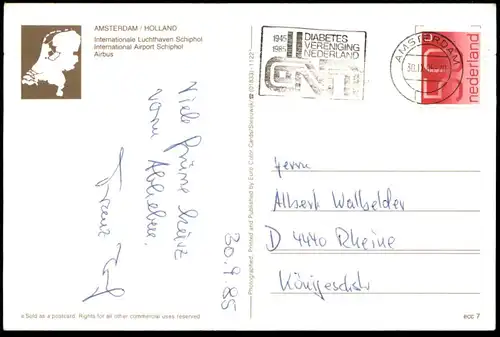 AMSTERDAM / HOLLAND
Internationale Luchthaven Schiphol
International Airport Schiphol
Airbus
1945
1985
DIABETES
VERENIGING
NEDERLAND
AMSTERDAM
nederland
Viele Grüße
vorm Abheben.
Franz
30.9.85
Photographed, Printed and Published by Euro Color Cards
Herrn
Albert Walbelder
D 4440 Rheine
Königseschstr
Sold as a postcard. Rights for all other commercial uses reserved
ecc 7